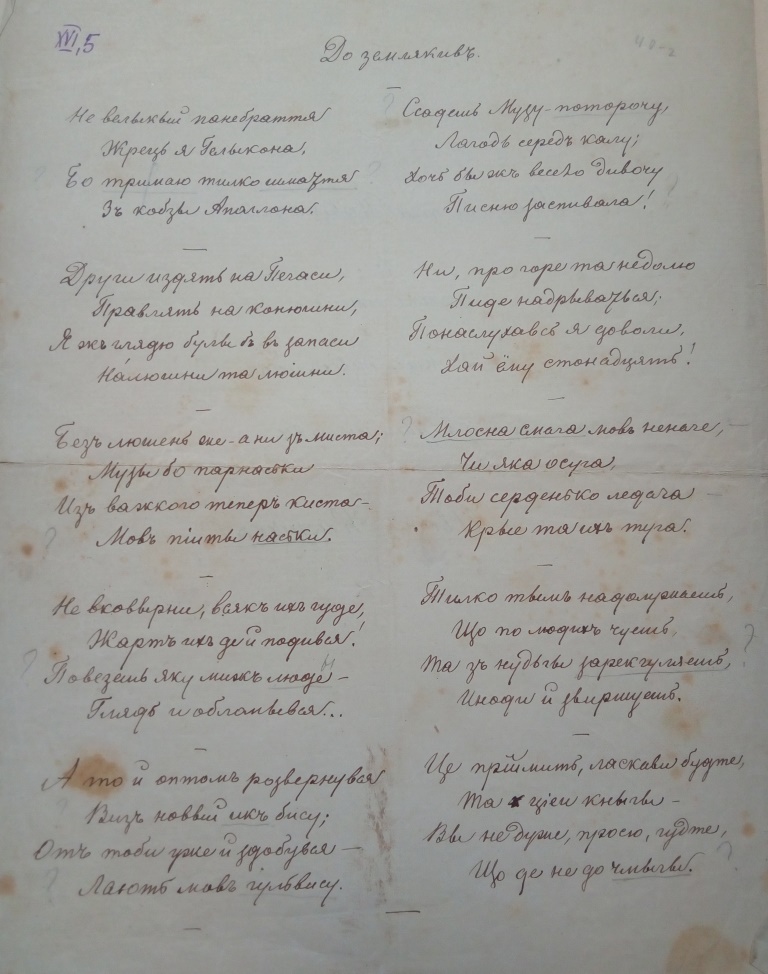 XVI,5
До землякивъ.
Не велыкый панебраття
Жрець я Гелыкона,
Бо тримаю тилко шмаття
Зъ кобзы Аполлона.
Други издять на Пегаси,
Правлять на конюшни,
Я жъ глядю булы бъ въ запаси
Налюшни та люшни.
Безъ люшень же - а ни зъ миста;
Музы бо парнаськи
Изъ важкого теперъ киста -
Мовъ пииты наськи.
Не вковырни, всякъ ихъ гуде,
Жартъ ихъ де й подився!
Повезешь яку мижъ люде -
Глядь и обломывся...
А то й оптомъ розвернувся
Визъ новый икъ бису;
Отъ тоби уже й здобувся -
Лають мовъ гульвису.
Ссадешь Музу - поторочу,
Лагодь середъ калу;
Хочъ бы жъ весело дивочу
Писню заспивала!
Ни, про горе та недолю
Пиде надрываться;
Понаслухавсь я доволи,
Хай ёму стонадцять!
Млосна смага мовъ неначе,
Чи яка осуга,
Тоби серденько ледача
Крые та ихъ туга.
Тилко тымъ надолужаешь,
Що по людихъ чуешь,
Та зъ нудьгы зарекгуляешь,
Иноди й звиршуешь.
Це прыймить, ласкави будте,
Та цiеи кныгы -
Вы не дуже, просю, гудте,
Що де не до чмыгы.